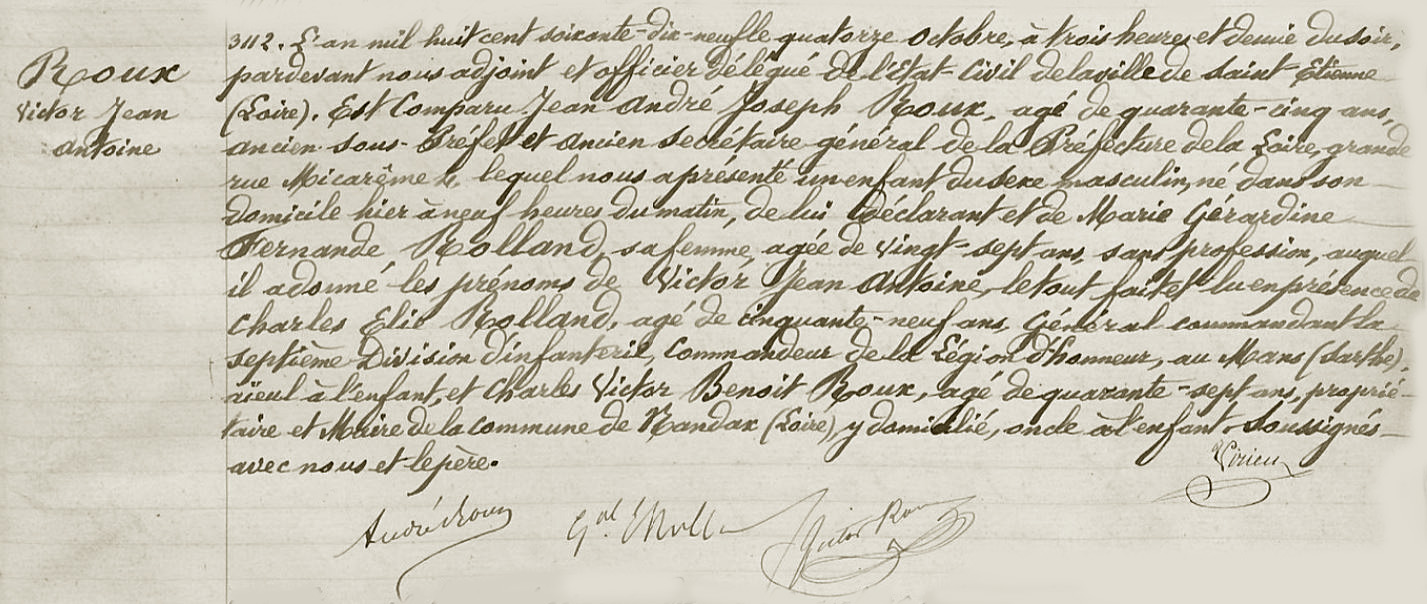 Roux
Victor Jean
Antoine
3112. L'an mil huit cent soixante-dix-neuf le quatorze Octobre, à trois heures et demie du soir,
pardevant nous adjoint et officier délégué de l'état-civil de la ville de Saint-Etienne
(Loire). Est Comparu Jean André Joseph Roux, agé de quarante-cinq ans,
ancien sous-Préfet et ancien secrétaire général de la Préfecture de la Loire, grande
rue Micarême 4, lequel nous a présenté un enfant du sexe masculin, né dans son
domicile hier à neuf heures du matin, de lui déclarant et de Marie Gérardine
Fernande Rolland, sa femme, agée de vingt-sept ans, sans profession, auquel
il a donné les prénoms de Victor Jean Antoine, le tout fait et lu en présence de
Charles Elie Rolland, agé de cinquante-neuf ans, Général commandant la
septième Division d'infanterie, Commandeur de la Légion d'honneur, au Mans (Sarthe),
aïeul à l'enfant, et Charles Victor Benoit Roux, agé de quarante-sept ans, proprié-
taire et Maire de la commune de Nandax (Loire), y domicilié, oncle à l'enfant. Soussignés
avec nous et le père.
André Roux
Gal
Victor Roux